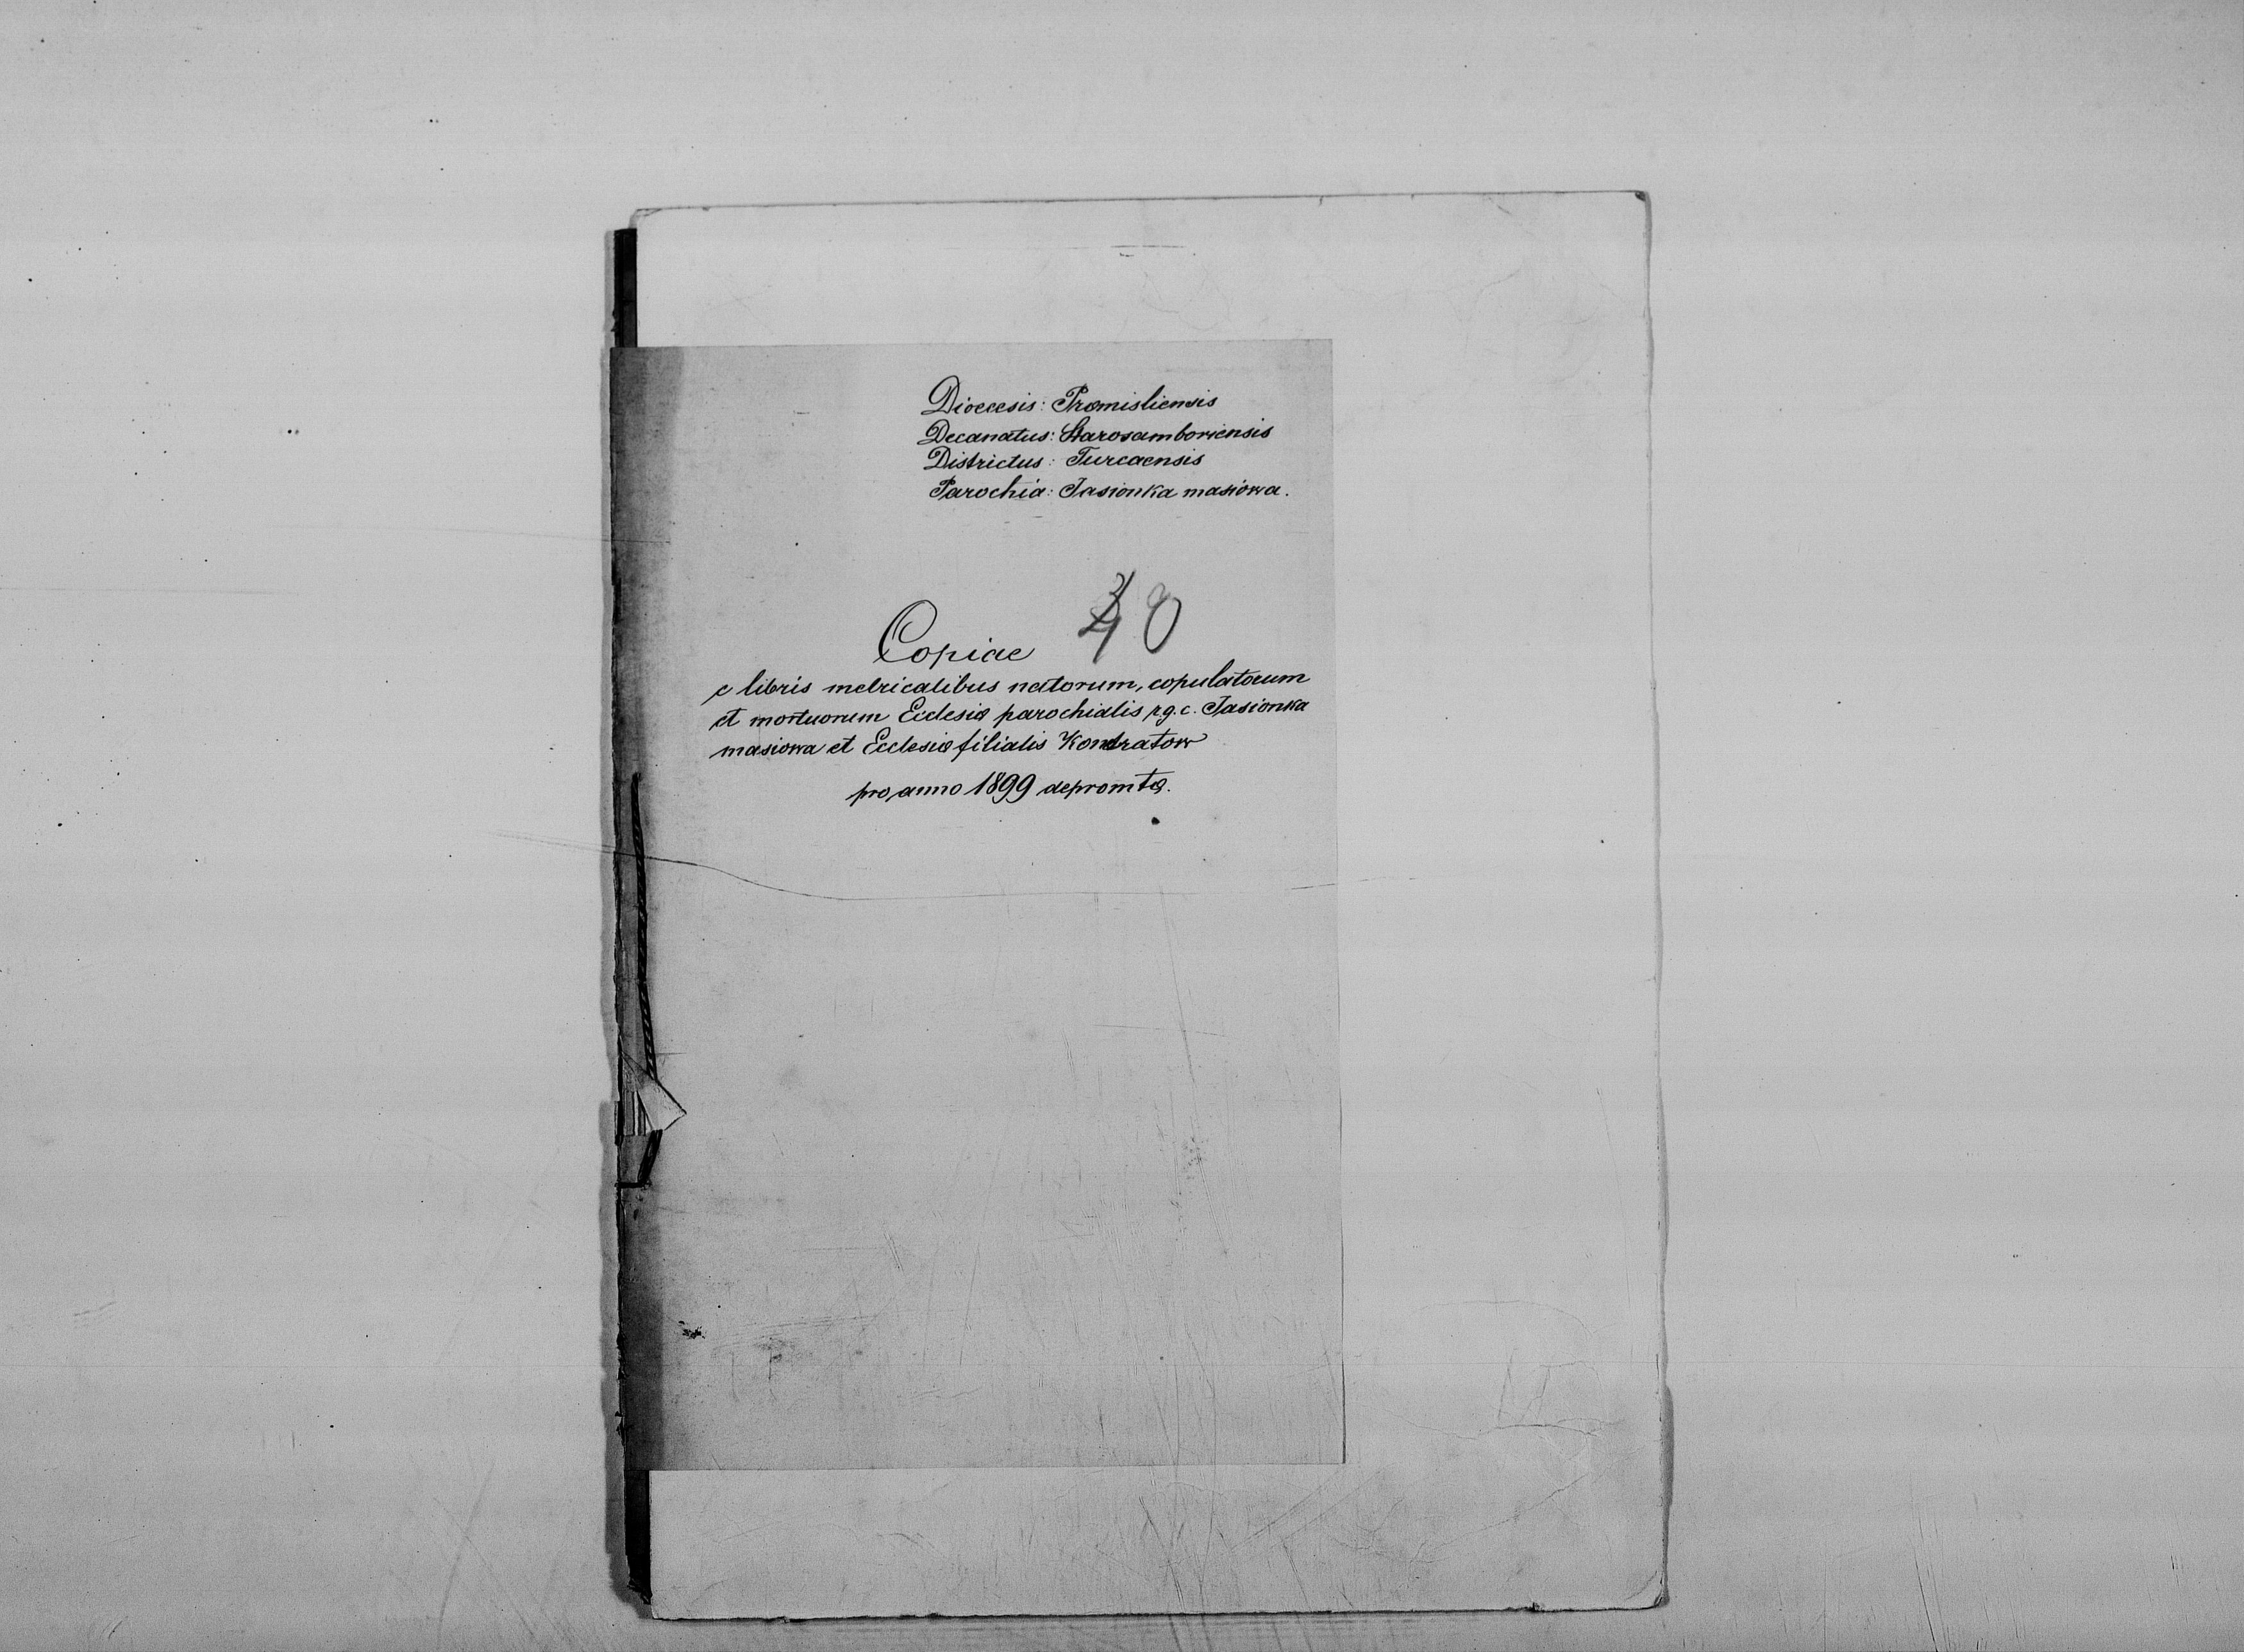 Dioecesis: Premisliensis
Decanatus: Starosamboriensis
Districtus: Turcaensis
Parochia: Jasionka masiowa.
Copiae
e libris metricalibus natorum, copulatorum
et mortuorum Ecclesiæ parochialis r.g.c. Jasionka
masiowa et Ecclesiæ filialis Kondratow
pro anno 1899 depromtæ.